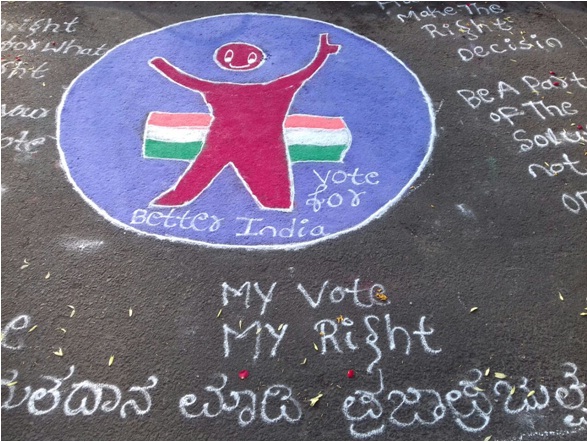 for What
Make The
Right
Decisin
Be A Part
of The
not
Vote
for
Better India
MY Vote
MY Right
ಮತದಾನ ಮಾಡಿ ಪ್ರಜಾಪ್ರಭುತ್ವ